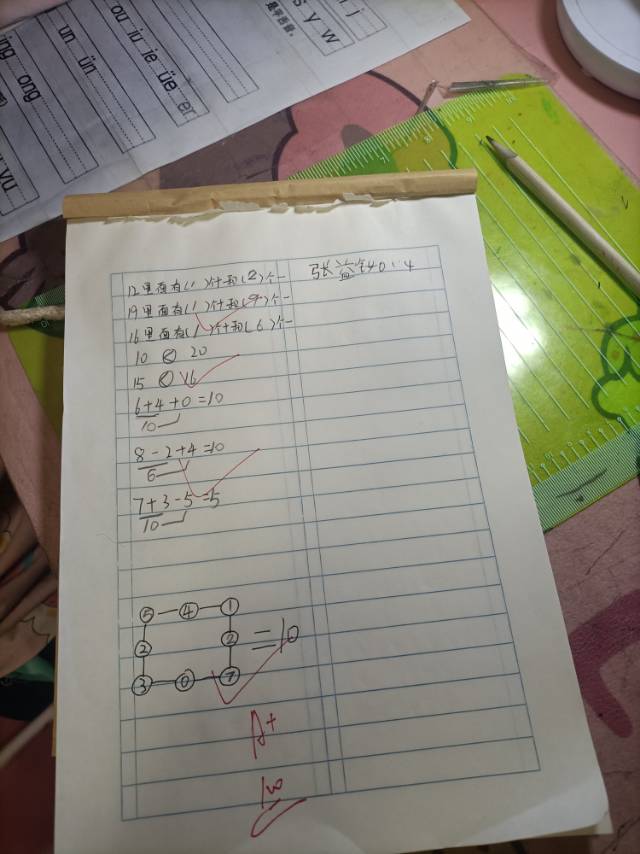 ong
un ün
ou iu ie üe er
s y w
12里面有(1)个十和(2)个一
19里面有(1)个十和(9)个一
16里面有(1)个十和(6)个一
10 < 20
15 < 16
6+4+0=10
10
8-2+4=10
6
7+3-5=5
10
5 4 1
2 2 =10
3 0 7
A+
100